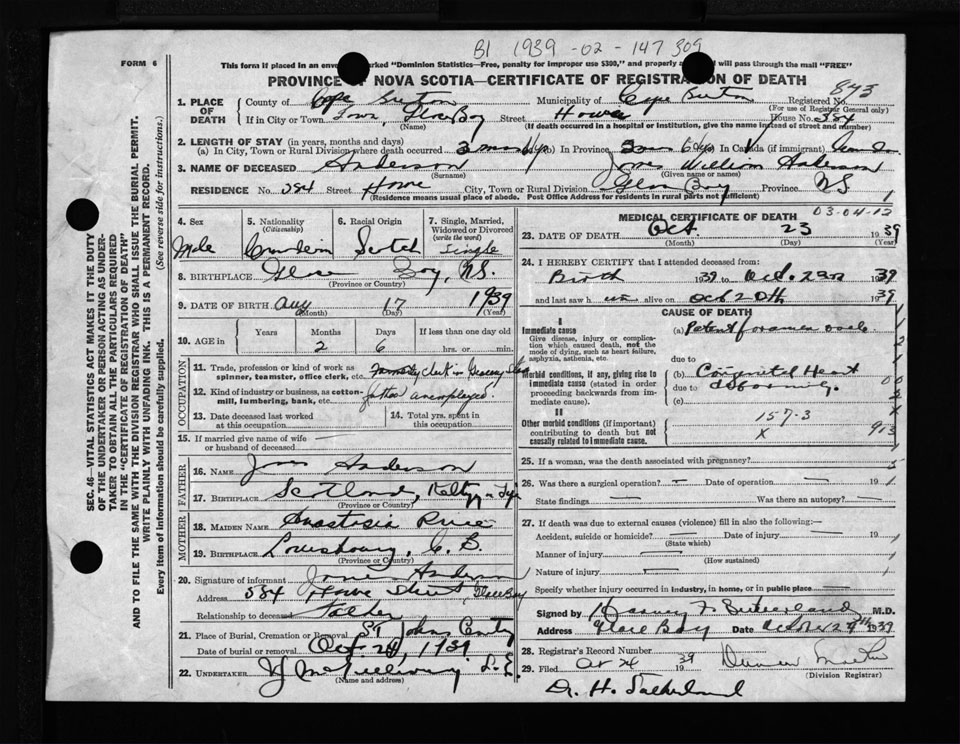 B1 1939 - 02 - 147 309
FORM 6
This form if placed in an marked "Dominion Statistics—Free, penalty for improper use $300," and properly will pass through the mail "FREE"
PROVINCE OF NOVA SCOTIA—CERTIFICATE OF REGISTRATION OF DEATH
843
1. PLACE OF DEATH
County of Cape Breton Municipality of Cape Breton Registered No.
(For use of Registrar General only)
If in City or Town Town, Glace Bay Street Howe House No. 384
(Name) (If death occurred in a hospital or institution, give the name instead of street and number)
2. LENGTH OF STAY (in years, months and days)
(a) In City, Town or Rural Division where death occurred 2 mos 6 dys In Province 2 mos 6 dys In Canada (if immigrant)
3. NAME OF DECEASED Anderson James William Anderson
(Surname) (Given name or names)
RESIDENCE No. 384 Street Howe City, Town or Rural Division Glace Bay Province N.S. 1
(Residence means usual place of abode. Post Office Address for residents in rural parts not sufficient)
4. Sex Male
5. Nationality (Citizenship) Canadian
6. Racial Origin Scotch
7. Single, Married, Widowed or Divorced (write the word) Single
8. BIRTHPLACE Glace Bay, N.S.
(Province or Country)
9. DATE OF BIRTH Aug 17 1939
(Month) (Day) (Year)
10. AGE in Years Months Days If less than one day old
2 6 hrs. or min.
OCCUPATION
11. Trade, profession or kind of work as spinner, teamster, office clerk, etc. Formerly clerk in Grocery Store
12. Kind of industry or business, as cotton-mill, lumbering, bank, etc. father unemployed.
13. Date deceased last worked at this occupation
14. Total yrs. spent in this occupation
15. If married give name of wife or husband of deceased
FATHER
16. NAME James Anderson
17. BIRTHPLACE Scotland,
(Province or Country)
MOTHER
18. MAIDEN NAME Anastasia Price
19. BIRTHPLACE Louisbourg, C.B.
(Province or Country)
20. Signature of informant James Anderson
Address 384 Howe Street, Glace Bay
Relationship to deceased Father
21. Place of Burial, Cremation or Removal St John
Date of burial or removal Oct 24, 1939
22. UNDERTAKER
(Name and address)
MEDICAL CERTIFICATE OF DEATH
03-04-12
23. DATE OF DEATH Oct. 23 1939
(Month) (Day) (Year)
24. I HEREBY CERTIFY that I attended deceased from:
Birth 1939 to Oct. 23rd 1939
and last saw h im alive on Oct 20th 1939
CAUSE OF DEATH
I
Immediate cause
Give disease, injury or complication which caused death, not the mode of dying, such as heart failure, asphyxia, asthenia, etc.
(a) Patent foramen ovale
due to
Morbid conditions, if any, giving rise to immediate cause (stated in order proceeding backwards from immediate cause).
(b) Congenital Heart
due to deformity.
(c)
II
Other morbid conditions (if important) contributing to death but not causally related to immediate cause.
157-3
X
25. If a woman, was the death associated with pregnancy?
26. Was there a surgical operation? Date of operation 19
State findings Was there an autopsy?
27. If death was due to external causes (violence) fill in also the following:—
Accident, suicide or homicide? Date of injury 19
(State which)
Manner of injury
(How sustained)
Nature of injury
Specify whether injury occurred in industry, in home, or in public place
Signed by Harvey F. Sutherland M.D.
Address Glace Bay Date October 24th 1939
28. Registrar's Record Number
29. Filed Oct 24 1939
(Division Registrar)
Dr. H. Sutherland
SEC. 46—VITAL STATISTICS ACT MAKES IT THE DUTY
OF THE UNDERTAKER OR PERSON ACTING AS UNDER-
TAKER TO OBTAIN ALL THE PARTICULARS REQUIRED
IN THE "CERTIFICATE OF REGISTRATION OF DEATH"
AND TO FILE THE SAME WITH THE DIVISION REGISTRAR WHO SHALL ISSUE THE BURIAL PERMIT.
WRITE PLAINLY WITH UNFADING INK. THIS IS A PERMANENT RECORD.
Every item of information should be carefully supplied. (See reverse side for instructions.)